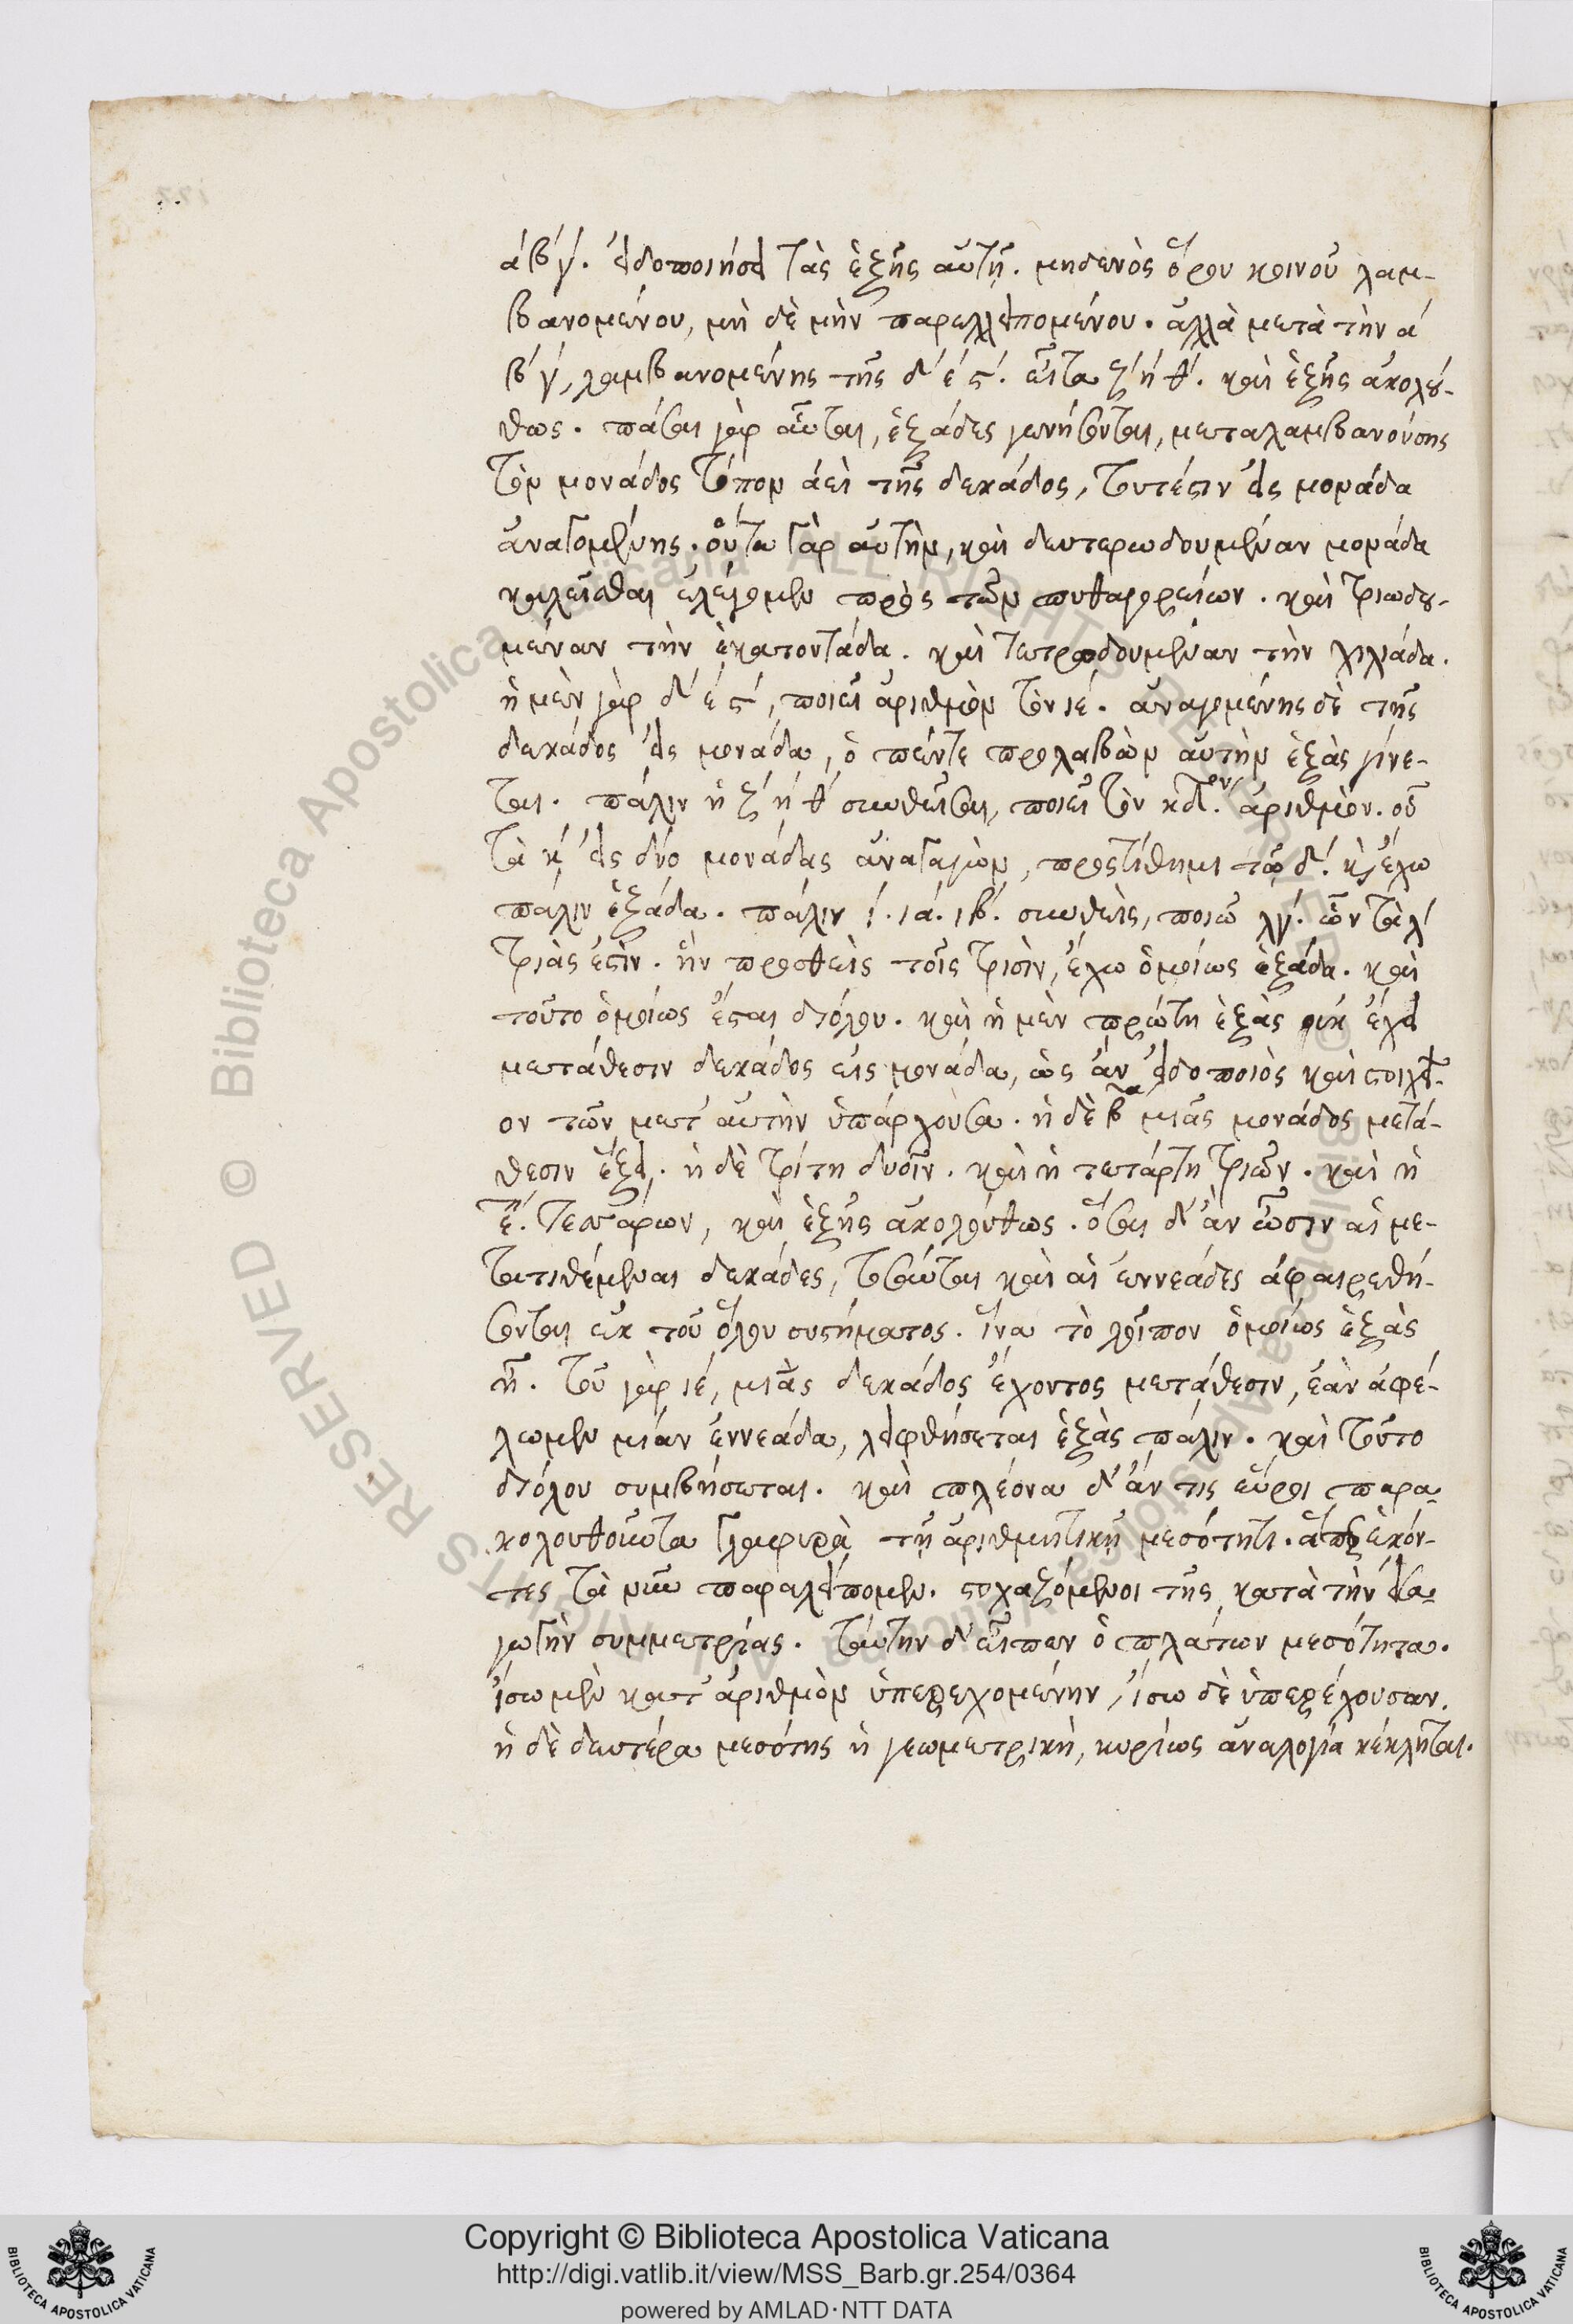 ά β́ γ́. εἰδοποιήσει τὰς ἑξῆς αὐτῇ. μηδενὸς ὅρου κοινοῦ λαμ-
βανομένου, μὴ δὲ μὴν παρελλειπομένου. ἀλλὰ μετὰ τὴν ά
β́ γ́, λαμβανομένης τῆς δ́ έ ϛ́. εἶτα ζ́ ή θ́. καὶ ἑξῆς ἀκολού-
θως. πᾶσαι γὰρ αὗται, ἑξάδες γενήσονται, μεταλαμβανούσης
τὸν μονάδος τόπον ἀεὶ τῆς δεκάδος, τουτέστιν εἰς μονάδα
ἀναγομένης. οὕτω γὰρ αὐτὴν, καὶ δευτερωδουμέναν μονάδα
καλεῖσθαι ἐλέγομεν πρὸς τῶν πυθαγορείων. καὶ τριωδου-
μέναν τὴν ἑκατοντάδα. καὶ τετρωδουμέναν τὴν χιλιάδα.
ἡ μὲν γὰρ δ́ έ ϛ́, ποιεῖ ἀριθμὸν τὸν ιέ. ἀναγομένης δὲ τῆς
δεκάδος εἰς μονάδα, ὁ πέντε προσλαβὼν αὐτὴν ἑξὰς γίνε-
ται. πάλιν ἡ ζ́ ή θ́ συνθεῖσαι, ποιεῖ τὸν κδ́ον. ἀριθμόν. οὗ
τὰ κ́ εἰς δύο μονάδας ἀναγαγὼν, προστίθημι τῷ δ́. καὶ ἔχω
πάλιν ἑξάδα. πάλιν ί. ιά. ιβ́. συνθεὶς, ποιῶ λγ́. ὧν τὰ λ́
τριάς ἐστιν. ἣν προσθεὶς τοῖς τρισὶν, ἔχω ὁμοίως ἑξάδα. καὶ
τοῦτο ὁμοίως ἔσται διόλου. καὶ ἡ μὲν πρώτη ἑξὰς οὐκ ἔχει
μετάθεσιν δεκάδος εἰς μονάδα, ὡς ἂν εἰδοποιὸς καὶ στοιχεῖ-
ον τῶν μετ' αὐτὴν ὑπάρχουσα. ἡ δὲ βα μιᾶς μονάδος μετά-
θεσιν ἕξει. ἡ δὲ τρίτη δυοῖν. καὶ ἡ τετάρτη τριῶν. καὶ ἡ
έ. τεσσάρων, καὶ ἑξῆς ἀκολούθως. ὅσαι δ' ἂν ὦσιν αἱ με-
τατιθέμεναι δεκάδες, τοσαῦται καὶ αἱ ἐννεάδες ἀφαιρεθή-
σονται ἐκ τοῦ ὅλου συστήματος. ἵνα τὸ λοῖπον ὁμοίως ἑξὰς
ᾖ. τοῦ γὰρ ιέ, μιᾶς δεκάδος ἔχοντος μετάθεσιν, ἐὰν ἀφέ-
λωμεν μίαν ἐννεάδα, λειφθήσεται ἑξὰς πάλιν. καὶ τοῦτο
διόλου συμβήσεται. καὶ πλέονα δ' ἄν τις εὕροι παρα-
κολουθοῦντα γλαφυρὰ τῇ ἀριθμητικῇ μεσότητι. ἅπερ ἑκόν-
τες τὰ νῦν παραλείπομεν. στοχαζόμενοι τῆς κατὰ τὴν εἰσα-
γωγὴν συμμετρίας. ταύτην δ' εἶπεν ὁ πλάτων μεσότητα.
ἴσῳ μὲν κατ' ἀριθμὸν ὑπερεχομένην, ἴσῳ δὲ ὑπερέχουσαν.
ἡ δὲ δευτέρα μεσότης ἡ γεωμετρικὴ, κυρίως ἀναλογία κέκληται.
Copyright © Biblioteca Apostolica Vaticana
http://digi.vatlib.it/view/MSS_Barb.gr.254/0364
powered by AMLAD·NTT DATA